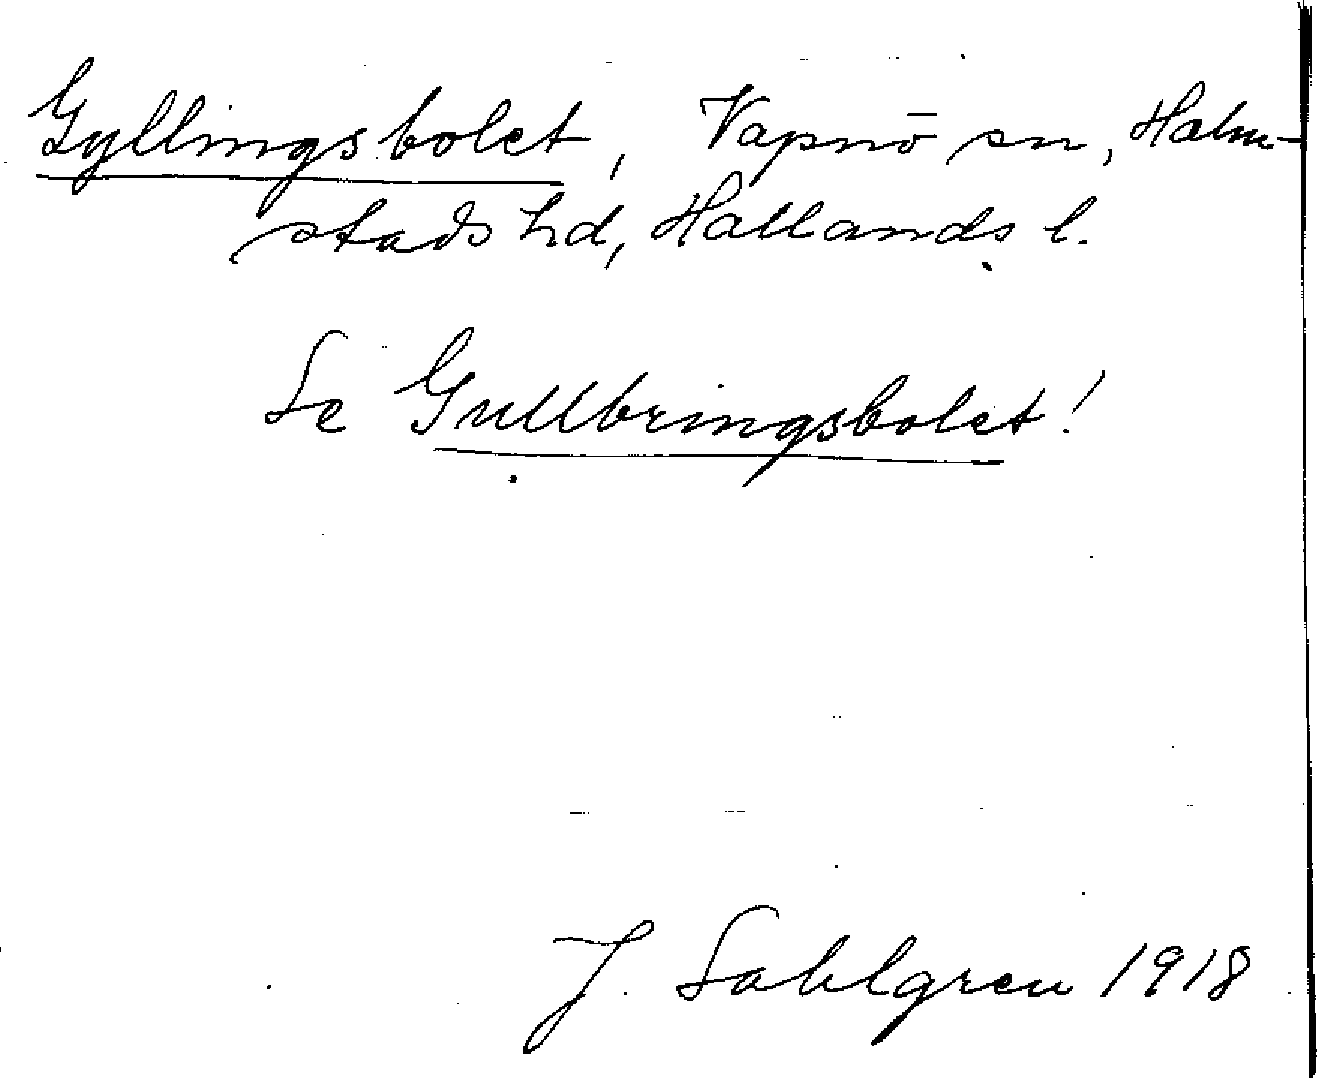 Gyllingsbolet, Vapnö sn, Halm-
stads hd, Hallands l.
Se Gullbringsbolet!
J. Sahlgren 1918